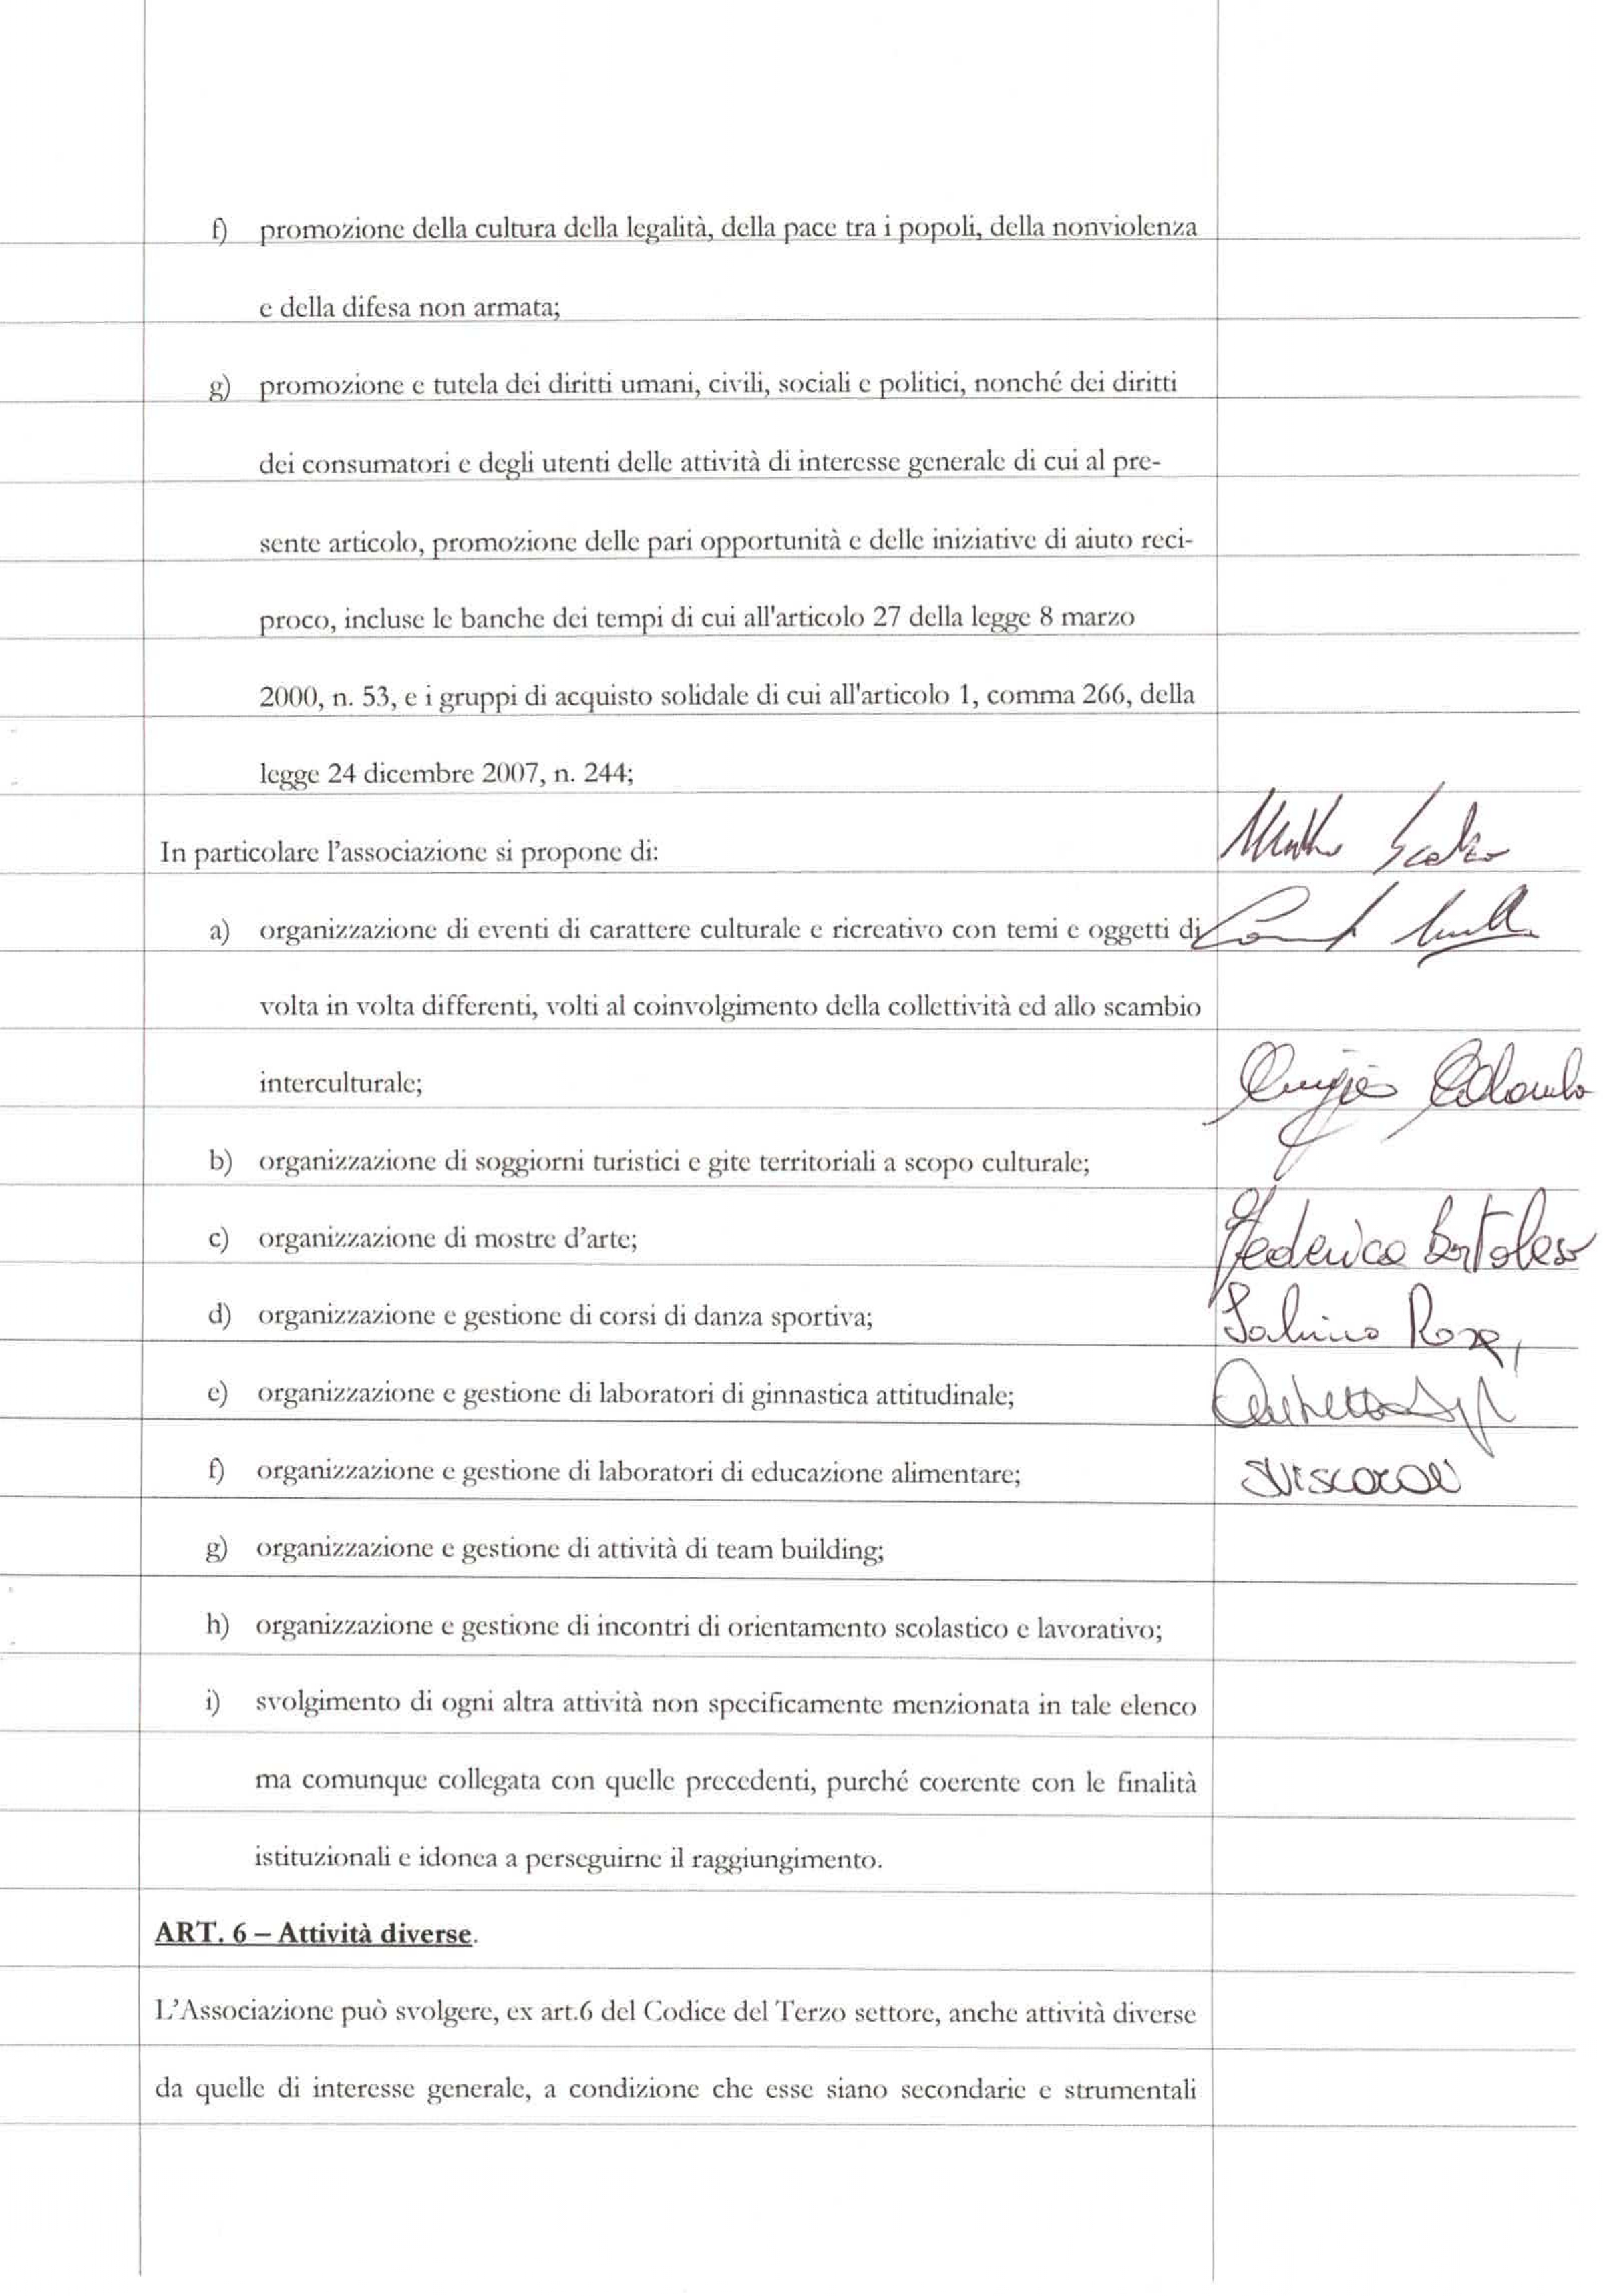 f) promozione della cultura della legalità, della pace tra i popoli, della nonviolenza
e della difesa non armata;
g) promozione e tutela dei diritti umani, civili, sociali e politici, nonché dei diritti
dei consumatori e degli utenti delle attività di interesse generale di cui al pre-
sente articolo, promozione delle pari opportunità e delle iniziative di aiuto reci-
proco, incluse le banche dei tempi di cui all'articolo 27 della legge 8 marzo
2000, n. 53, e i gruppi di acquisto solidale di cui all'articolo 1, comma 266, della
legge 24 dicembre 2007, n. 244;
In particolare l’associazione si propone di:
a) organizzazione di eventi di carattere culturale e ricreativo con temi e oggetti di
volta in volta differenti, volti al coinvolgimento della collettività ed allo scambio
interculturale;
Colombo
b) organizzazione di soggiorni turistici e gite territoriali a scopo culturale;
c) organizzazione di mostre d’arte;
Federico
d) organizzazione e gestione di corsi di danza sportiva;
e) organizzazione e gestione di laboratori di ginnastica attitudinale;
f) organizzazione e gestione di laboratori di educazione alimentare;
g) organizzazione e gestione di attività di team building;
h) organizzazione e gestione di incontri di orientamento scolastico e lavorativo;
i) svolgimento di ogni altra attività non specificamente menzionata in tale elenco
ma comunque collegata con quelle precedenti, purché coerente con le finalità
istituzionali e idonea a perseguirne il raggiungimento.
ART. 6 – Attività diverse.
L’Associazione può svolgere, ex art.6 del Codice del Terzo settore, anche attività diverse
da quelle di interesse generale, a condizione che esse siano secondarie e strumentali